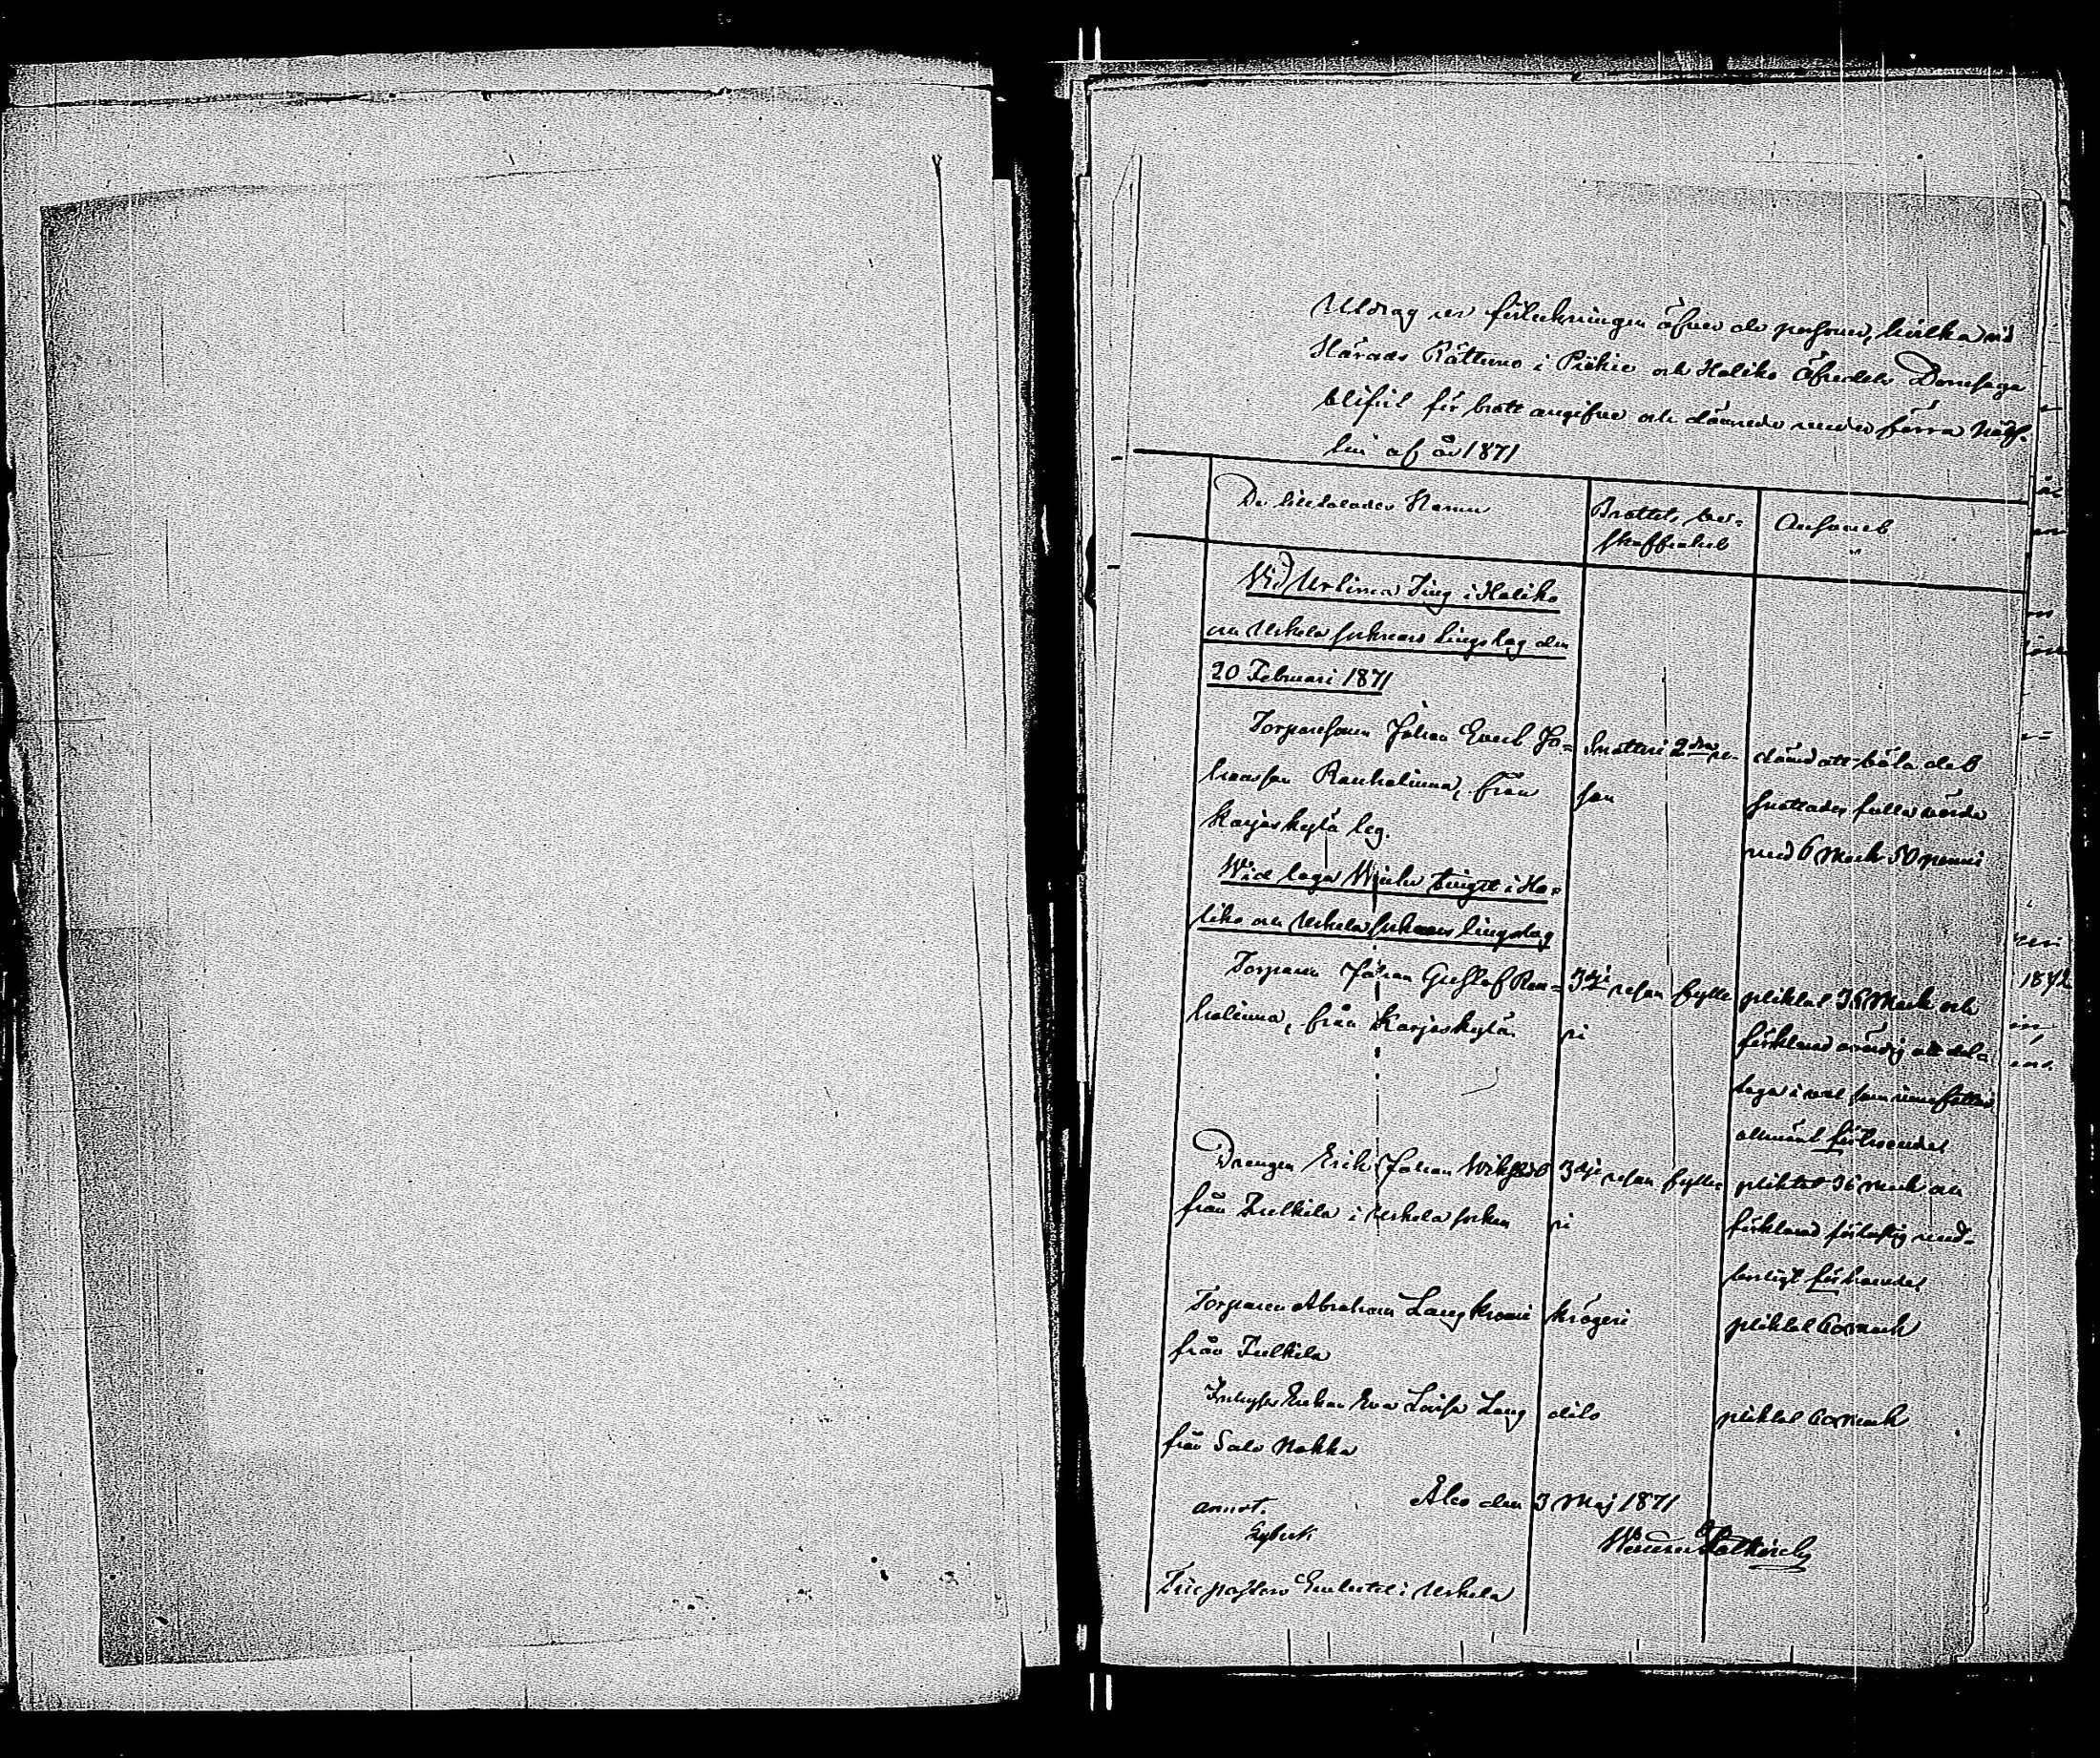 Utdrag ur förteckningen öfver de personer, hvilka vid
Härads Rätterne i Pikkie och Haliko Öfredels Domsaga
blifvit för brott angifne och dömde under förra hälf-
ten af år 1871
De tilltalades Namn
Brottets be-
skaffenhet
Anfordt
Vid Urtima Ting i Haliko
och Uskela soknars tingslag den
20 Februari 1871
Torparesonen Johan Evert Jo-
hansson Rauhalinna, från
Karjaskylä leg.
Snatteri 2dra re-
san
dömd att böta det
snattades fulla värde
med 6 Mark 50 penni
Wid laga Winter Tinget i Ha-
liko och Uskela soknars tingslag
Torparen Johan Gustaf Rau-
halinna, från Karjaskylä
3dje resan fylle
ri
pliktat 36 Mark och
förklarad ovärdig att del-
taga i val som
allmänt förtroende
Drengen Erik Johan Wikstedt
från Tulkila i Uskela soken
3dje resan fylle
ri
pliktat 36 mark och
förklarad förlustig med-
borgligt förtroende
Torparen Abraham Lang
från Tulkila
krögeri
pliktat 60 mark
Inhyses Enkan Eva Lovisa Lang
från Salo Nokka
dito
pliktat 60 mark
Åbo den 3 Maj 1871
annot.
Till Pastors Embetet i Uskela